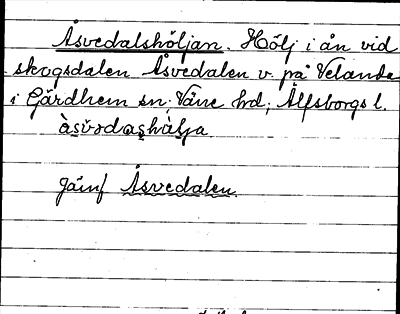 Åsvedalshöljan. Hölj i ån vid
skogsdalen Åsvedalen v. på Velanda
i Gärdhem sn. Väne hd, Älfsborgs l.
Jämf Åsvedalen.